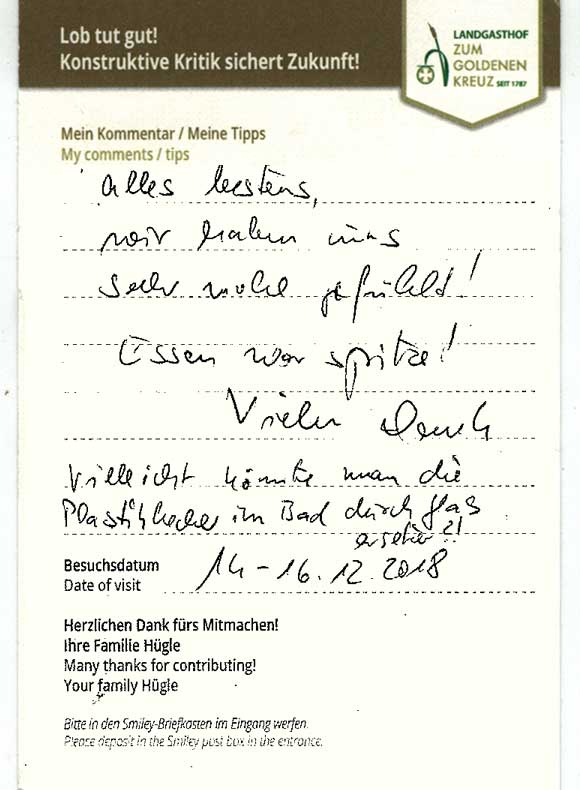 Lob tut gut!
Konstruktive Kritik sichert Zukunft!
LANDGASTHOF
ZUM
GOLDENEN
KREUZ SEIT 1787
Mein Kommentar / Meine Tipps
My comments / tips
alles bestens,
wir haben uns
sehr wohl gefühlt!
Essen war spitze!
Vielen Dank
Villeicht könnte man die
Plastikbecher im Bad durch Glas
ersetzen?!
Besuchsdatum
Date of visit
14-16.12.2018
Herzlichen Dank fürs Mitmachen!
Ihre Familie Hügle
Many thanks for contributing!
Your family Hügle
Bitte in den Smiley-Briefkasten im Eingang werfen.
Please deposit in the Smiley post box in the entrance.